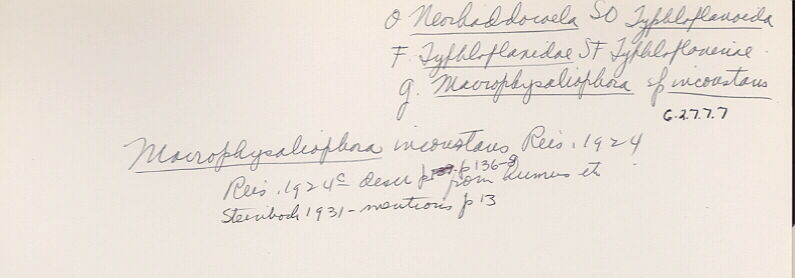 O Neorhabdocoela SO Typhloplanoida
F. Typhloplanidae SF Typhloplaninae
g. Macrophysaliophora sp inconstans
6.27.7.7
Macrophysaliophora inconstans Reis. 1924
Reis. 1924c descr p. p 136-9 from humus etc
Steinbock 1931 - mentions p 13